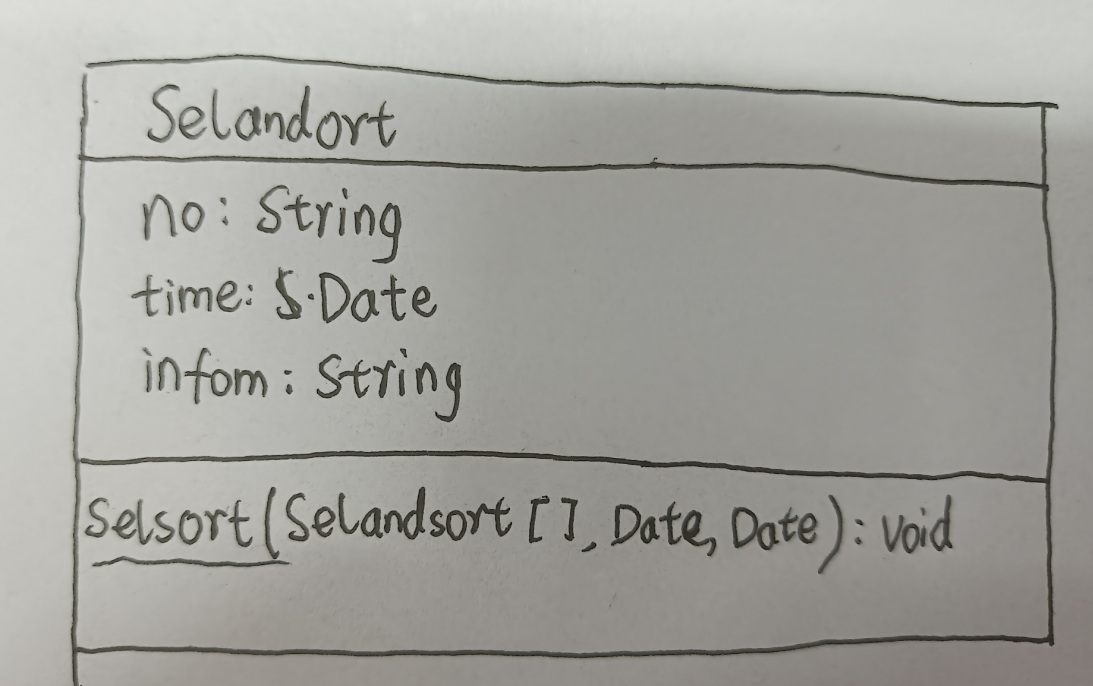 Selandort
no: String
time: S.Date
infom: String
Selsort(Selandsort[], Date, Date): void